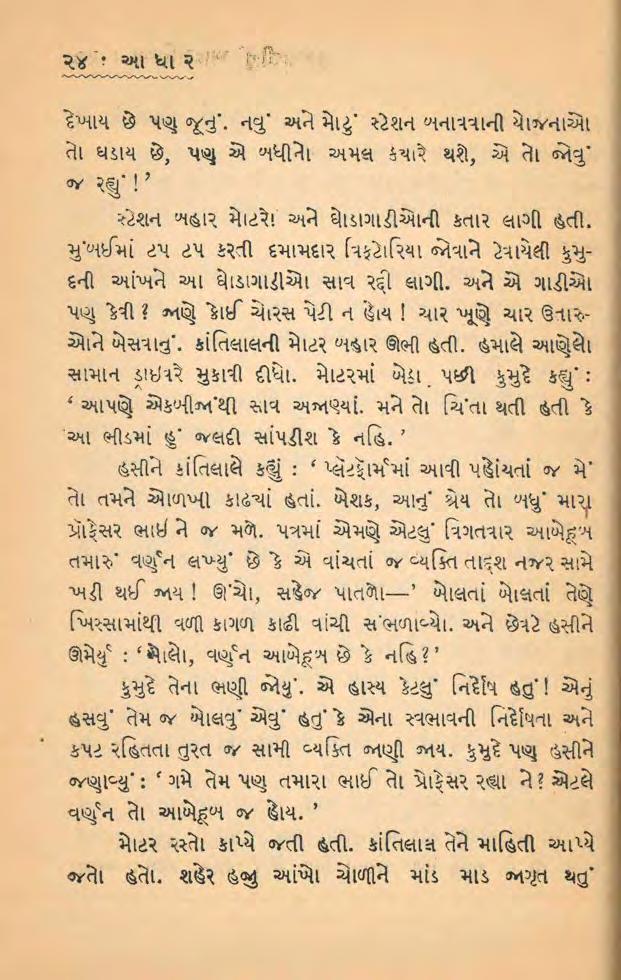 ૨૪ : આ ધા ર
દેખાય છે પણ જૂનું. નવું અને મોટું સ્ટેશન બનાવવાની યોજનાઓ
તો ઘડાય છે, પણ એ બધીનો અમલ કયારે થશે, એ તો જોવું
જ રહ્યું !’
સ્ટેશન બહાર મોટરો અને ઘોડાગાડીઓની કતાર લાગી હતી.
મુંબઈમાં ટપ ટપ કરતી દમામદાર વિકટોરિયા જોવાને ટેવાયેલી કુમુ-
દની આંખને આ ઘોડાગાડીઓ સાવ રદ્દી લાગી. અને એ ગાડીઓ
પણ કેવી ? જાણે કોઈ ચોરસ પેટી ન હોય ! ચાર ખૂણે ચાર ઉતારુ-
ઓને બેસવાનું. કાંતિલાલની મોટર બહાર ઊભી હતી. હમાલે આણેલો
સામાન ડ્રાઇવરે મુકાવી દીધો. મોટરમાં બેઠા પછી કુમુદે કહ્યું :
‘ આપણે એકબીજાંથી સાવ અજાણ્યાં. મને તો ચિંતા થતી હતી કે
આ ભીડમાં હું જલદી સાંપડીશ કે નહિ. ’
હસીને કાંતિલાલે કહ્યું : ‘ પ્લૅટફૉર્મમાં આવી પહોંચતાં જ મેં
તો તમને ઓળખી કાઢ્યાં હતાં. બેશક, આનું શ્રેય તો બધું મારા
પ્રૉફેસર ભાઈ ને જ મળે. પત્રમાં એમણે એટલું વિગતવાર આબેહૂબ
તમારું વર્ણન લખ્યું છે કે એ વાંચતાં જ વ્યક્તિ તાદૃશ નજર સામે
ખડી થઈ જાય ! ઊંચો, સહેજ પાતળો—’ બોલતાં બોલતાં તેણે
ખિસ્સામાંથી વળી કાગળ કાઢી વાંચી સંભળાવ્યો. અને છેવટે હસીને
ઊમેર્યું : ‘ બોલો, વર્ણન આબેહૂબ છે કે નહિ ?’
કુમુદે તેના ભણી જોયું. એ હાસ્ય કેટલું નિર્દોષ હતું ! એનું
હસવું તેમ જ બોલવું એવું હતું કે એના સ્વભાવની નિર્દોષતા અને
કપટ રહિતતા તુરત જ સામી વ્યક્તિ જાણી જાય. કુમુદે પણ હસીને
જણાવ્યું : ‘ ગમે તેમ પણ તમારા ભાઈ તો પ્રોફેસર રહ્યા ને ? એટલે
વર્ણન તો આબેહૂબ જ હોય. ’
મોટર રસ્તો કાપ્યે જતી હતી. કાંતિલાલ તેને માહિતી આપ્યે
જતો હતો. શહેર હજી આંખો ચોળીને માંડ માડ જાગૃત થતું